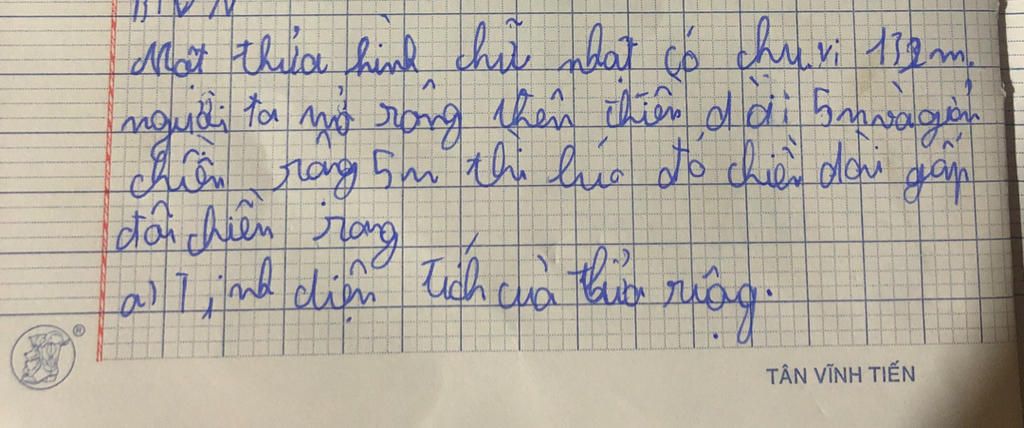 Một thửa hình chữ nhật có chu vi 132m.
người ta mở rộng thên chiều dài 5m và giản
chiều rộng 5m thì lúc đó chiều dài gấp
đôi chiều rong
a) Tính diện tích của thửa ruộng.
TÂN VĨNH TIẾN